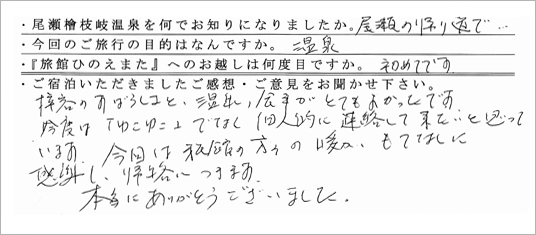 ・尾瀬檜枝岐温泉を何でお知りになりましたか。尾瀬の帰り道で…
・今回のご旅行の目的はなんですか。 温泉
・『旅館ひのえまた』へのお越しは何度目ですか。 初めてです
・ご宿泊いただきましたご感想・ご意見をお聞かせ下さい。
接客のすばらしさと、温泉、食事がとてもよかったです。
今度は「ゆこゆこ」でなく個人的に連絡して来たいと思って
います。今回は旅館の方々の暖い、もてなしに
感謝し、帰路につきます。
本当にありがとうございました。